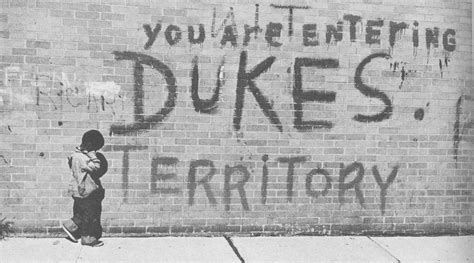 YOU ARE ENTERING
DUKES.
TERRITORY